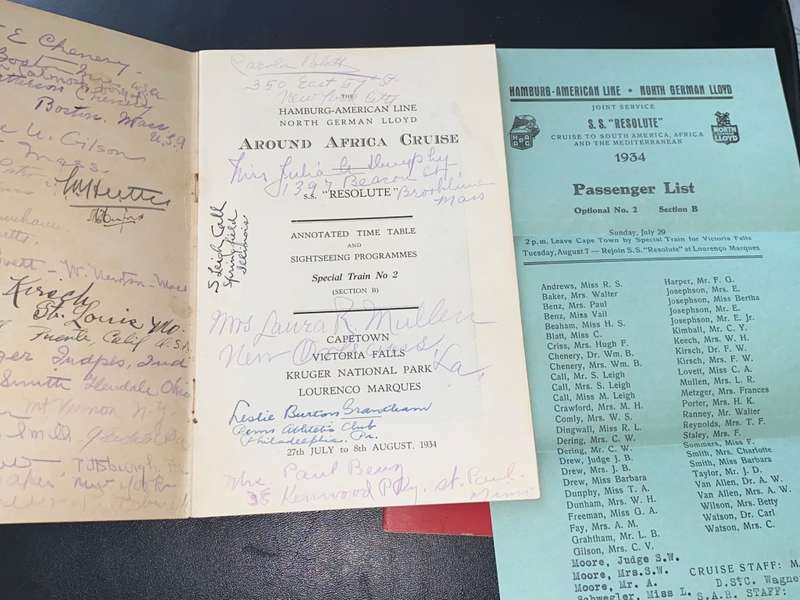 E Chenery
Boston Mass
U.S.A
Gilson
Mass.
Kirsch
St. Louis Mo.
Puente, Calif U.S.A
Ind
Smith Glendale Ohio
Mt Vernon N.Y.
350 East 57th St
New York City
THE
HAMBURG-AMERICAN LINE
NORTH GERMAN LLOYD
AROUND AFRICA CRUISE
Miss Julia G Dunphy
1397 Beacon St
Brookline
Mass
S.S. "RESOLUTE"
S Leigh Call
Springfield
Illinois
ANNOTATED TIME TABLE
AND
SIGHTSEEING PROGRAMMES
Special Train No 2
(SECTION B)
Mrs Laura R. Mullen
New Orleans
La.
CAPETOWN
VICTORIA FALLS
KRUGER NATIONAL PARK
LOURENCO MARQUES
Leslie Burton Grandham
Penn Athletic Club
Philadelphia, Pa.
27th JULY to 8th AUGUST, 1934
Mrs. Paul Benz
Kenwood Pky. St. Paul
Minn
HAMBURG-AMERICAN LINE • NORTH GERMAN LLOYD
JOINT SERVICE
S.S. "RESOLUTE"
CRUISE TO SOUTH AMERICA, AFRICA
AND THE MEDITERRANEAN
1934
NORTH
LLOYD
Passenger List
Optional No. 2 Section B
Sunday, July 29
2 p.m. Leave Cape Town by Special Train for Victoria Falls
Tuesday, August 7 — Rejoin S.S. "Resolute" at Lourenço Marques
Andrews, Miss R. S.
Baker, Mrs. Walter
Benz, Mrs. Paul
Benz, Miss Vail
Beaham, Miss H. S.
Blatt, Miss C.
Criss, Mrs. Hugh F.
Chenery, Dr. Wm. B.
Chenery, Mrs. Wm. B.
Call, Mr. S. Leigh
Call, Mrs. S. Leigh
Call, Miss M. Leigh
Crawford, Mrs. M. H.
Comly, Mrs. W. S.
Dingwall, Miss R. L.
Dering, Mr. C. W.
Dering, Mrs. C. W.
Drew, Judge J. B.
Drew, Mrs. J. B.
Drew, Miss Barbara
Dunphy, Miss T. A.
Dunham, Mrs. W. H.
Freeman, Miss G. A.
Fay, Mrs. A. M.
Grahtham, Mr. L. B.
Gilson, Mrs. C. V.
Moore, Judge S.W.
Moore, Mrs.S.W.
Moore, Mr. A.
Schwegler, Miss L.
Harper, Mr. F. G.
Josephson, Mrs. E.
Josephson, Miss Bertha
Josephson, Mr. E.
Josephson, Mr. E. Jr.
Kimball, Mr. C. Y.
Keech, Mrs. W. H.
Kirsch, Dr. F. W.
Kirsch, Mrs. F. W.
Lovett, Miss C. A.
Mullen, Mrs. L. R.
Metzger, Mrs. Frances
Porter, Mrs. H. K.
Ranney, Mr. Walter
Reynolds, Mrs. T. F.
Staley, Mrs. F.
Sommers, Miss F.
Smith, Mrs. Charlotte
Smith, Miss Barbara
Taylor, Mr. J. D.
Van Allen, Dr. A. W.
Van Allen, Mrs. A. W.
Wilson, Mrs. Betty
Watson, Dr. Carl
Watson, Mrs. C.
CRUISE STAFF: M
D.StC. Wagne
S.A.R. STAFF: